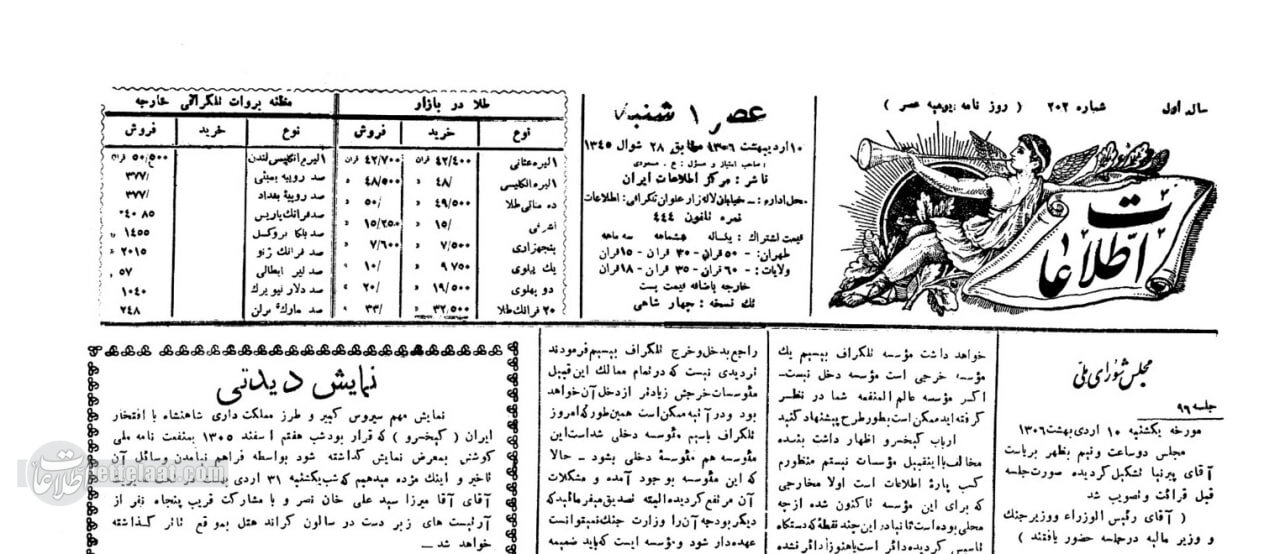 سال اول
شماره ۲۰۲
( روز نامه یومیه عصر )
اطلاعات
عصر ۱ شنبه
۱۰ اردیبهشت ۱۳۰۶ مطابق ۲۸ شوال ۱۳۴۵
صاحب امتیاز و مسئول : ع . مسعودی
ناشر : مرکز اطلاعات ایران
محل اداره : ــ خیابان لاله زار عنوان تلگرافی : اطلاعات
نمره تلفون ۴۴۴
قیمت اشتراك : یکساله ششماهه سه ماهه
طهران : - ۵۰ قران - ۳۰ قران - ۱۵ قران
ولایات : - ۶۰ قران - ۳۵ قران - ۱۸ قران
خارجه باضافه قیمت پست
تك نسخه : چهار شاهی
طلا در بازار
نوع خرید فروش
۱ لیره عثمانی ۴۲/۴۰۰ قران ۴۲/۷۰۰ قران
۱ لیره انگلیسی ۴۸/ « ۴۸/۵۰۰ «
ده مناتی طلا ۴۹/۵۰۰ « ۵۰/ «
اشرفی ۱۵/ « ۱۵/۲۵۰ «
پنجهزاری ۷/۵۰۰ « ۷/۶۰۰ «
یك پهلوی ۹ ۷۵۰ « ۱۰/ «
دو پهلوی ۱۹/۵۰۰ « ۲۰/ «
۲۰ فرانك طلا ۳۲/۵۰۰ « ۳۳/ «
مظنه بروات تلگرافی خارجه
نوع خرید فروش
۱ لیره انگلیسی لندن ۵۰/۵۰۰ قران
صد روپیه بمبئی ۳۷۷/
صد روپیهٔ بغداد ۳۷۷/
صد فرانك پاریس ۴۰ ۸۵
صد بلگا بروکسل ۱۴۵۵
صد فرانك ژنو ۲۰۱۵
صد لیر ایطالی ۵۷
صد دلار نیویرك ۱۰۴۰
صد مارك برلن ۲۴۸
مجلس شورای ملی
جلسه ۹۶
مورخه یکشنبه ۱۰ اردی بهشت ۱۳۰۶
مجلس دو ساعت و نیم بظهر بریاست
آقای پیرنیا تشکیل گردیده صورت جلسه
قبل قرائت و تصویب شد
( آقای رئیس الوزراء و وزیر جنك
و وزیر مالیه در جلسه حضور یافتند )
خواهد داشت مؤسسه تلگراف بیسیم یك
مؤسسه خرجی است مؤسسه دخل نیست-
اگر مؤسسه عالم المنفعه شما در نظر
گرفته اید ممکن است بطور طرح پیشنهاد کنید
ارباب کیخسرو اظهار داشت بنده
مخالف با اینقبیل مؤسسات نیستم منظورم
کسب پارهٔ اطلاعات است اولا مخارجی
که برای این مؤسسه تاکنون شده از چه
محلی بوده است ثانیا در این چند نقطه که دستگاه
تاسیس گردیده دائر است یا هنوز دائر نشده
راجع بدخل و خرج تلگراف بیسیم فرمودند
تردیدی نیست که در تمام ممالك این قبیل
مؤسسات خرجش زیادتر از دخل آن خواهد
بود و در آتیه ممکن است همین طور که امروز
تلگراف باسیم مؤسسه دخلی شده است این
مؤسسه هم مؤسسهٔ دخلی بشود – حالا
که این مؤسسه بوجود آمده و مشکلات
آن مرتفع گردیده البته تصدیق میفرمائید که
دیگر بودجه آن را وزارت جنك نمیتوانست
عهده دار شود و مؤسسه ایست که باید ضمیمه
نمایش دیدنی
نمایش مهم سیروس کبیر و طرز مملکت داری شاهنشاه با افتخار
ایران ( کیخسرو ) که قرار بود شب هفتم اسفند ۱۳۰۵ بمنفعت نامه ملی
کوشش بمعرض نمایش گذاشته شود بواسطه فراهم نیامدن وسائل آن
تاخیر و اینك مژده میدهیم که شب یکشنبه ۳۱ اردی بهشت در تحت
آقای آقا میرزا سید علی خان نصر و با مشارکت قریب پنجاه نفر از
آرتیست های زبر دست در سالون گراند هتل بموقع تئاتر گذاشته
خواهد شد ــ
اطلاعات
ettelaat.com